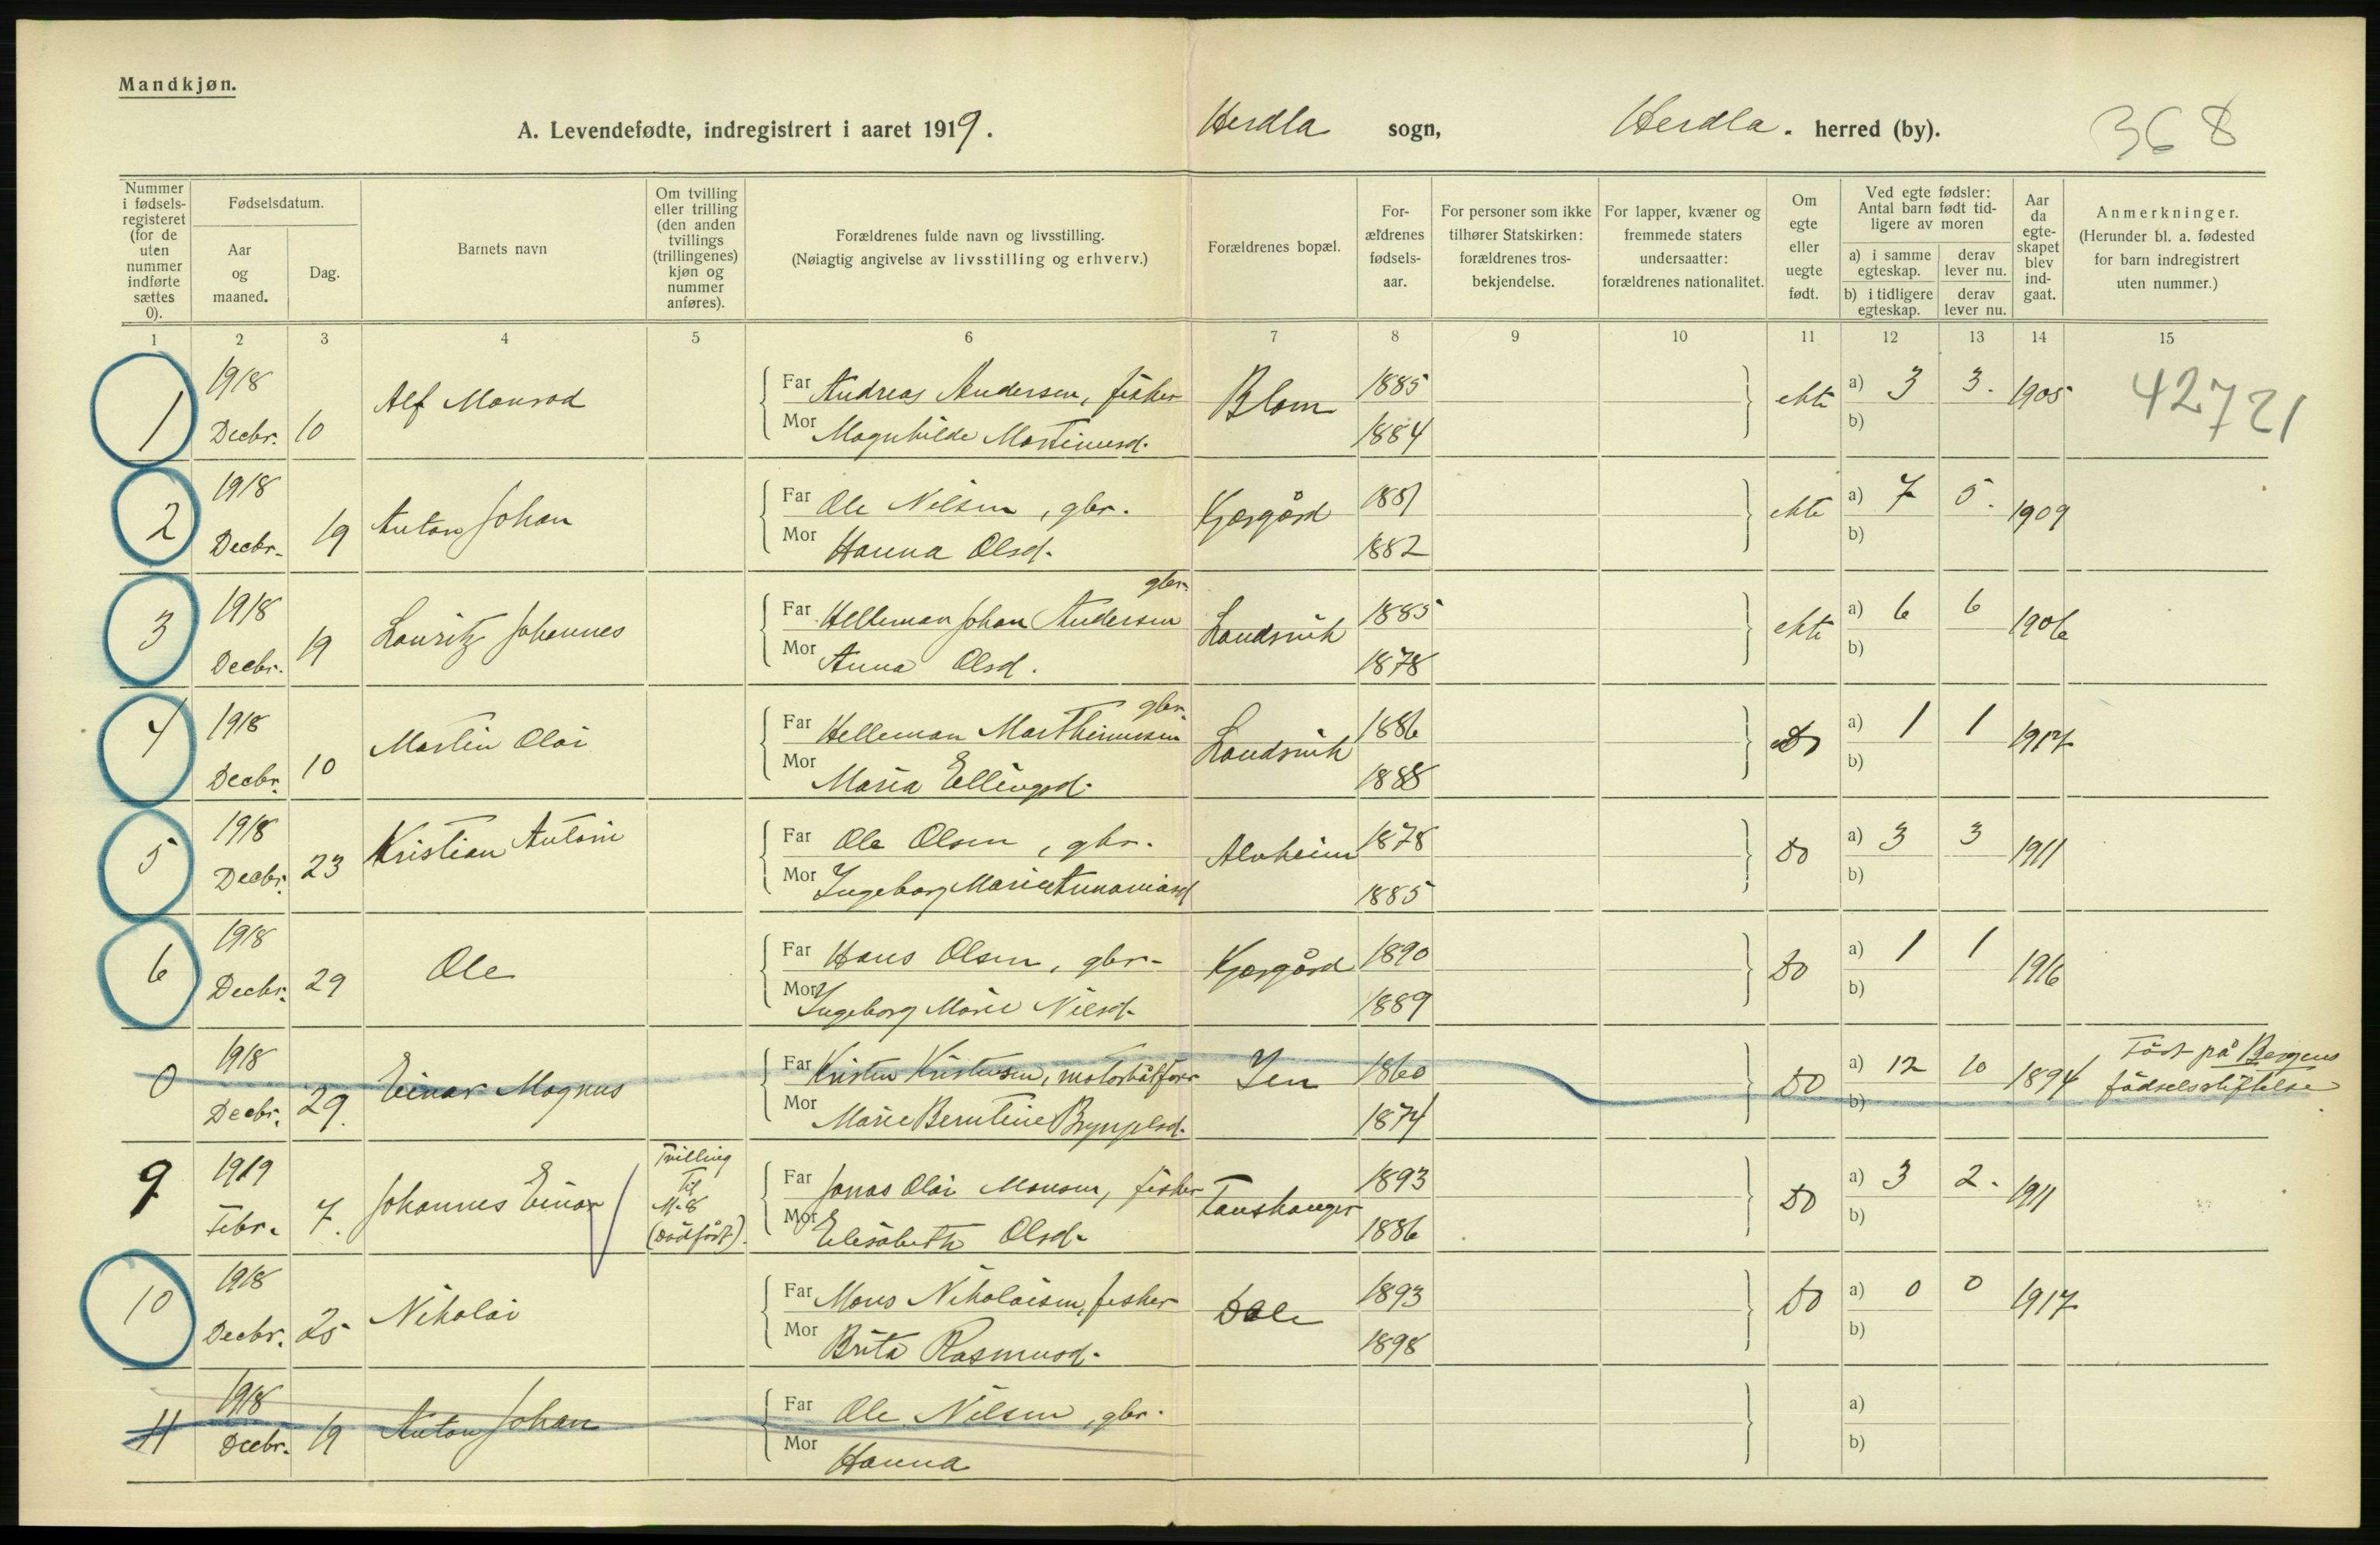 Mandkjøn.
A. Levendefødte, indregistrert i aaret 1919. Herdla sogn, Herdla. herred (by). 368
Nummer i fødsels-registeret (for de uten nummer indførte sættes 0).
Fødselsdatum.
Aar og maaned.
Dag.
Barnets navn
Om tvilling eller trilling (den anden tvillings (trillingenes) kjøn og nummer anføres).
Forældrenes fulde navn og livsstilling.
(Nøiagtig angivelse av livsstilling og erhverv.)
Forældrenes bopæl.
For-ældrenes fødsels-aar.
For personer som ikke tilhører Statskirken: forældrenes tros-bekjendelse.
For lapper, kvæner og fremmede staters undersaatter: forældrenes nationalitet.
Om egte eller uegte født.
Ved egte fødsler: Antal barn født tid-ligere av moren
a) i samme egteskap.
derav lever nu.
b) i tidligere egteskap.
derav lever nu.
Aar da egte-skapet blev ind-gaat.
Anmerkninger.
(Herunder bl. a. fødested for barn indregistrert uten nummer.)
1 2 3 4 5 6 7 8 9 10 11 12 13 14 15
1 1918 Decbr. 10 Alf Monrad Far Andreas Andersen, fisker Blom 1885 ekte a) 3 3. 1905 42721
Mor Magnhilde Martinusd. 1884 b)
2 1918 Decbr. 19 Anton Johan Far Ole Nilsen, gbr. Kjærgård 1881 ekte a) 7 5. 1909
Mor Hanna Olsd. 1882 b)
3 1918 Decbr. 19 Lauritz Johannes Far Helleman Johan Andersen gbr. Landsvik 1885 ekte a) 6 6 1906
Mor Anna Olsd. 1878 b)
4 1918 Decbr. 10 Martin Olai Far Helleman Marthinussen gbr. Landsvik 1886 Do a) 1 1 1917
Mor Maria Ellingsd. 1888 b)
5 1918 Decbr. 23 Kristian Antoni Far Ole Olsen, gbr. Alvheim 1878 Do a) 3 3 1911
Mor Ingeborg Marie Annaniasd 1885 b)
6 1918 Decbr. 29 Ole Far Hans Olsen, gbr. Kjærgård 1890 Do a) 1 1 1916
Mor Ingeborg Marie Nilsd. 1889 b)
0 1918 Decbr. 29. Einar Magnus Far Kristen Kristensen, motorbåtfører Jen 1860 Do a) 12 10 1894 Född på Bergens
Mor Marie Berntine Brynjelsd. 1874 b) födselsstiftelse
9 1919 Febr. 7. Johannes Einar Tvilling til M.8 (dödfödt). Far Jonas Olai Monsen, fisker Tanshanger 1893 Do a) 3 2. 1911
Mor Elisabeth Olsd. 1886 b)
10 1918 Decbr. 25 Nikolai Far Mons Nikolaisen, fisker Dale 1893 Do a) 0 0 1917
Mor Brita Rasmusd. 1898 b)
11 1918 Decbr. 19 Anton Johan Far Ole Nilsen, gbr. a)
Mor Hanna b)